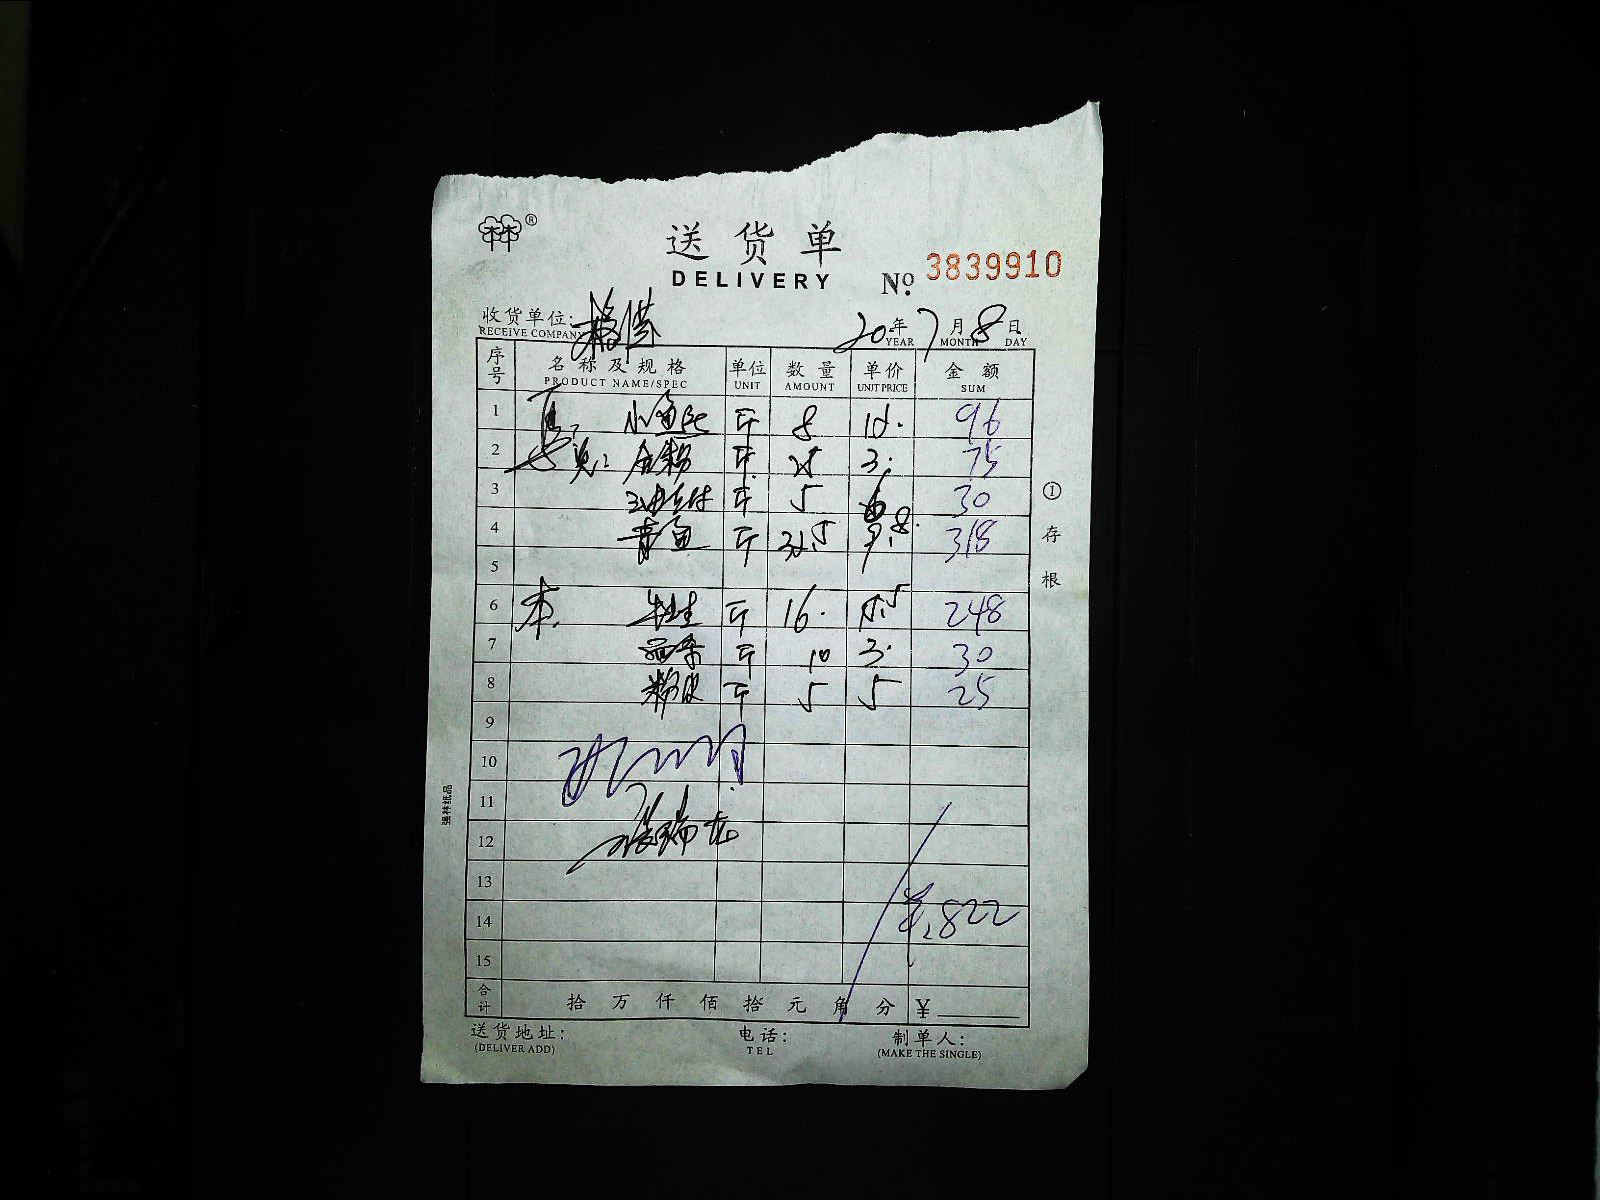 林®
送货单
DELIVERY
№ 3839910
收货单位:
RECEIVE COMPANY
20年7月8日
YEAR MONTH DAY
序号 名称及规格 单位 数量 单价 金额
PRODUCT NAME/SPEC UNIT AMOUNT UNIT PRICE SUM
1 小鱼 斤 8 12. 96
2 斤 25 3. 75
3 斤 5 6 30
4 青鱼 斤 32.5 9.8 318
5
6 本. 斤 16. 15.5 248
7 斤 10 3. 30
8 粉皮 斤 5 5 25
9
10
11
12 张瑞龙
13
14 822
15
合计 拾万仟佰拾元角分 ¥
送货地址: 电话: 制单人:
(DELIVER ADD) TEL (MAKE THE SINGLE)
①存根
强林纸品